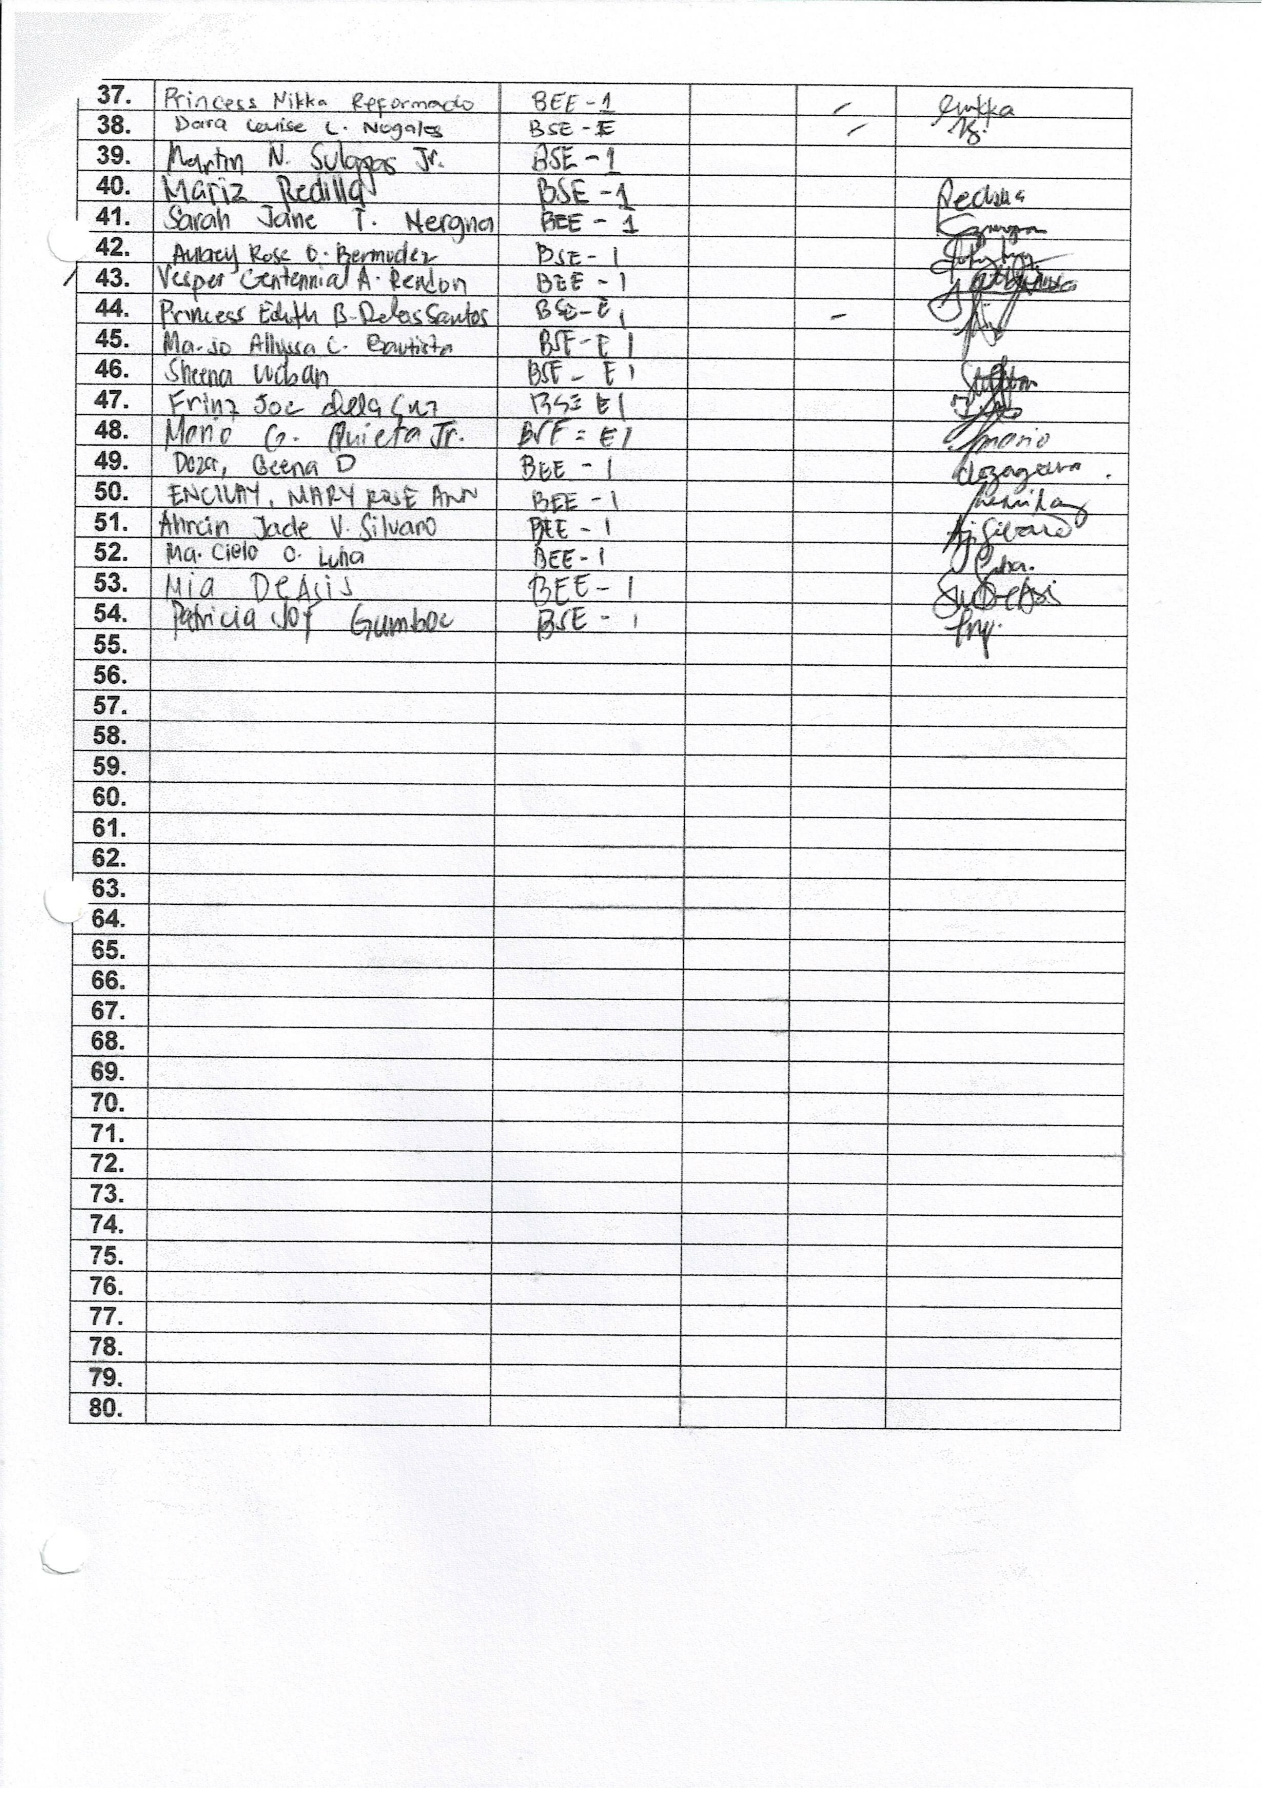 37. Princess Nikka Reformado BEE - 1
38. Dara Louise L. Nogales BSE - E
39. Martin N. Sulapas Jr. BSE - 1
40. Mariz Redilla BSE - 1 Redilla
41. Sarah Jane T. Nergna BEE - 1
42. Aubrey Rose O. Bermudez BSE - 1
43. Vesper Centennial A. Rendon BEE - 1
44. Princess Edith B. Delas Santos BSE - E 1 -
45. Ma. Jo Allyssa C. Bautista BSE - E 1
46. Sheena Urban BSE - E 1
47. Frinz Joe Dela Cruz BSE E1
48. Mario G. Quieta Jr. BSE = E1 mario
49. Doza, Geena D BEE - 1 dozageena
50. ENCILAY, MARY ROSE ANN BEE - 1
51. Ahrcin Jade V. Silvano BEE - 1
52. Ma. Cielo O. Luna BEE - 1
53. Mia DeAsis BEE - 1
54. Patricia Joy Gumboc BSE - 1
55.
56.
57.
58.
59.
60.
61.
62.
63.
64.
65.
66.
67.
68.
69.
70.
71.
72.
73.
74.
75.
76.
77.
78.
79.
80.